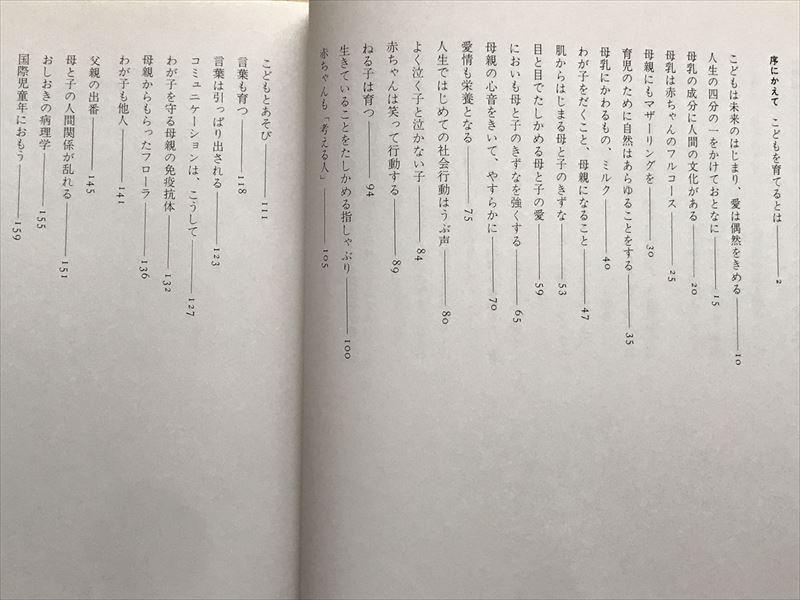 序にかえて こどもを育てるとは——2
こどもは未来のはじまり、愛は偶然をきめる——10
人生の四分の一をかけておとなに——15
母乳の成分に人間の文化がある——20
母乳は赤ちゃんのフルコース——25
母親にもマザーリングを——30
育児のために自然はあらゆることをする——35
母乳にかわるもの、ミルク——40
わが子をだくこと、母親になること——47
肌からはじまる母と子のきずな——53
目と目でたしかめる母と子の愛——59
においも母と子のきずなを強くする——65
母親の心音をきいて、やすらかに——70
愛情も栄養となる——75
人生ではじめての社会行動はうぶ声——80
よく泣く子と泣かない子——84
赤ちゃんは笑って行動する——89
ねる子は育つ——94
生きていることをたしかめる指しゃぶり——100
赤ちゃんも「考える人」——105
こどもとあそび——111
言葉も育つ——118
言葉は引っぱり出される——123
コミュニケーションは、こうして——127
わが子を守る母親の免疫抗体——132
母親からもらったフローラ——136
わが子も他人——141
父親の出番——145
母と子の人間関係が乱れる——151
おしおきの病理学——155
国際児童年におもう——159